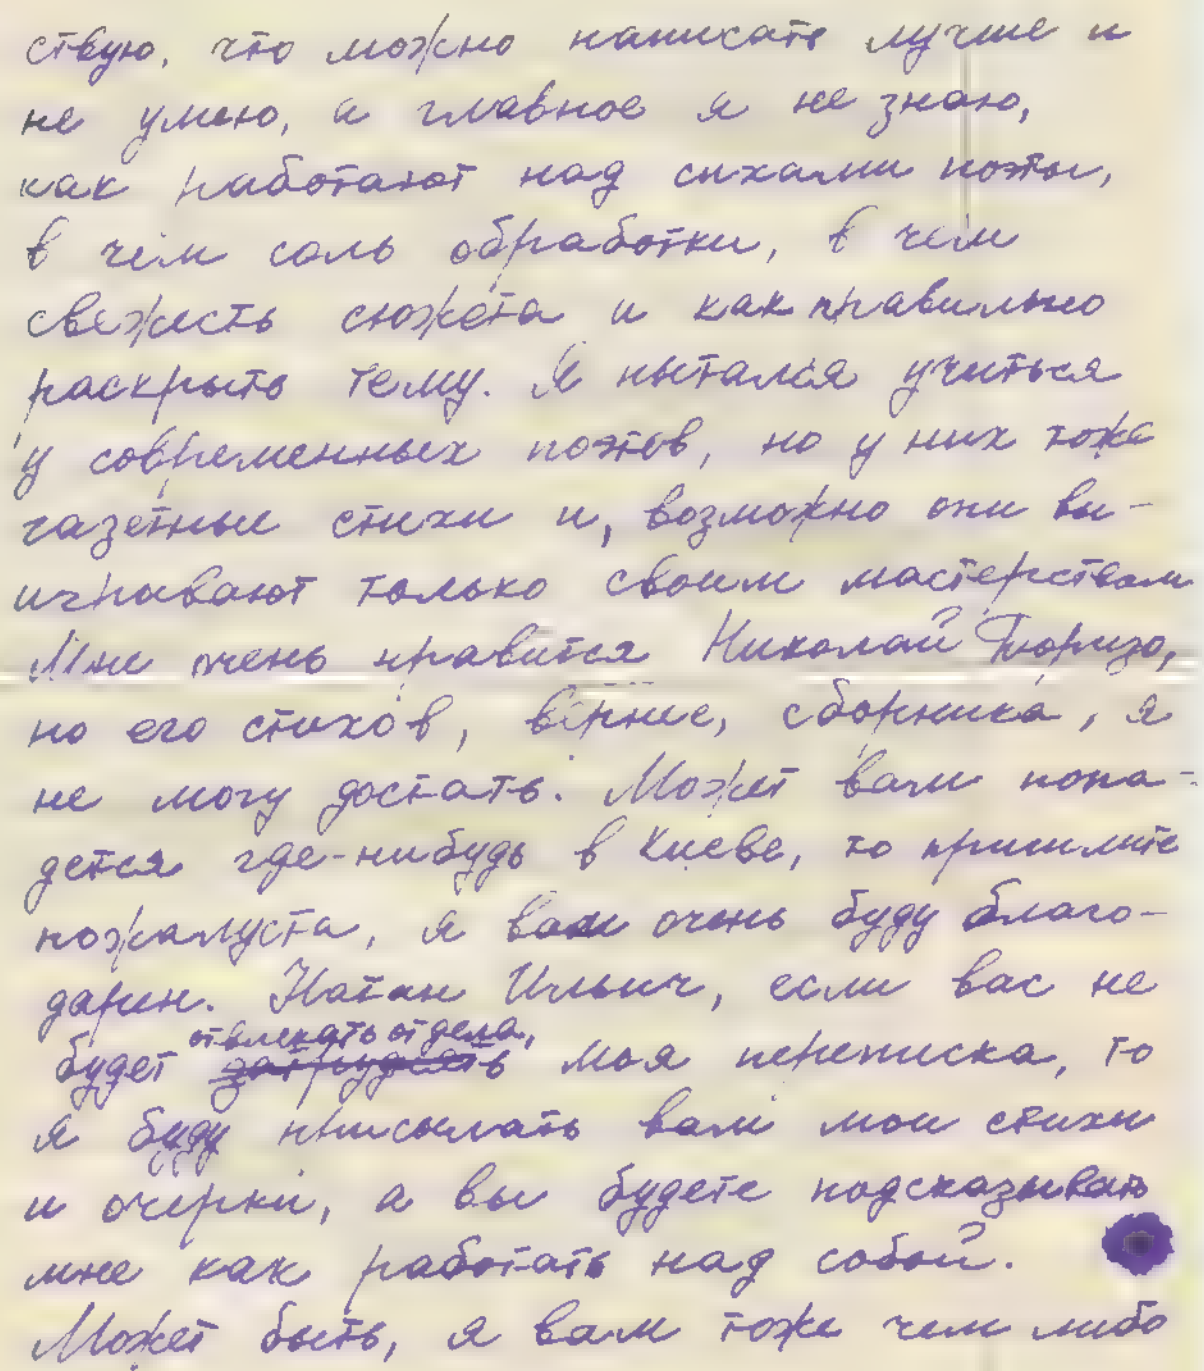 ствую, что можно написать лучше и
не умею, а главное я не знаю,
как работают над сыхами поэты,
в чём соль обработки, в чем
свежесть сюжета и как правильно
раскрыть тему. Я пытался учиться
у современных поэтов, но у них тоже
газетные стихи и, возможно они вы-
игравают только своим мастерством
Мне очень нравится Николай
но его стихов, вернее, сборника, я
не могу достать. Может вам попа-
дется где-нибудь в Киеве, то пришлите
пожалуста, я вам очень буду благо-
дарен. Натан Ильич, если вас не
отвлекать от дела,
будет затруднять моя переписка, то
я буду присылать вам мои стихи
и очерки, а вы будете подсказывать
мне как работать над собой.
Может быть, я вам тоже чем либо